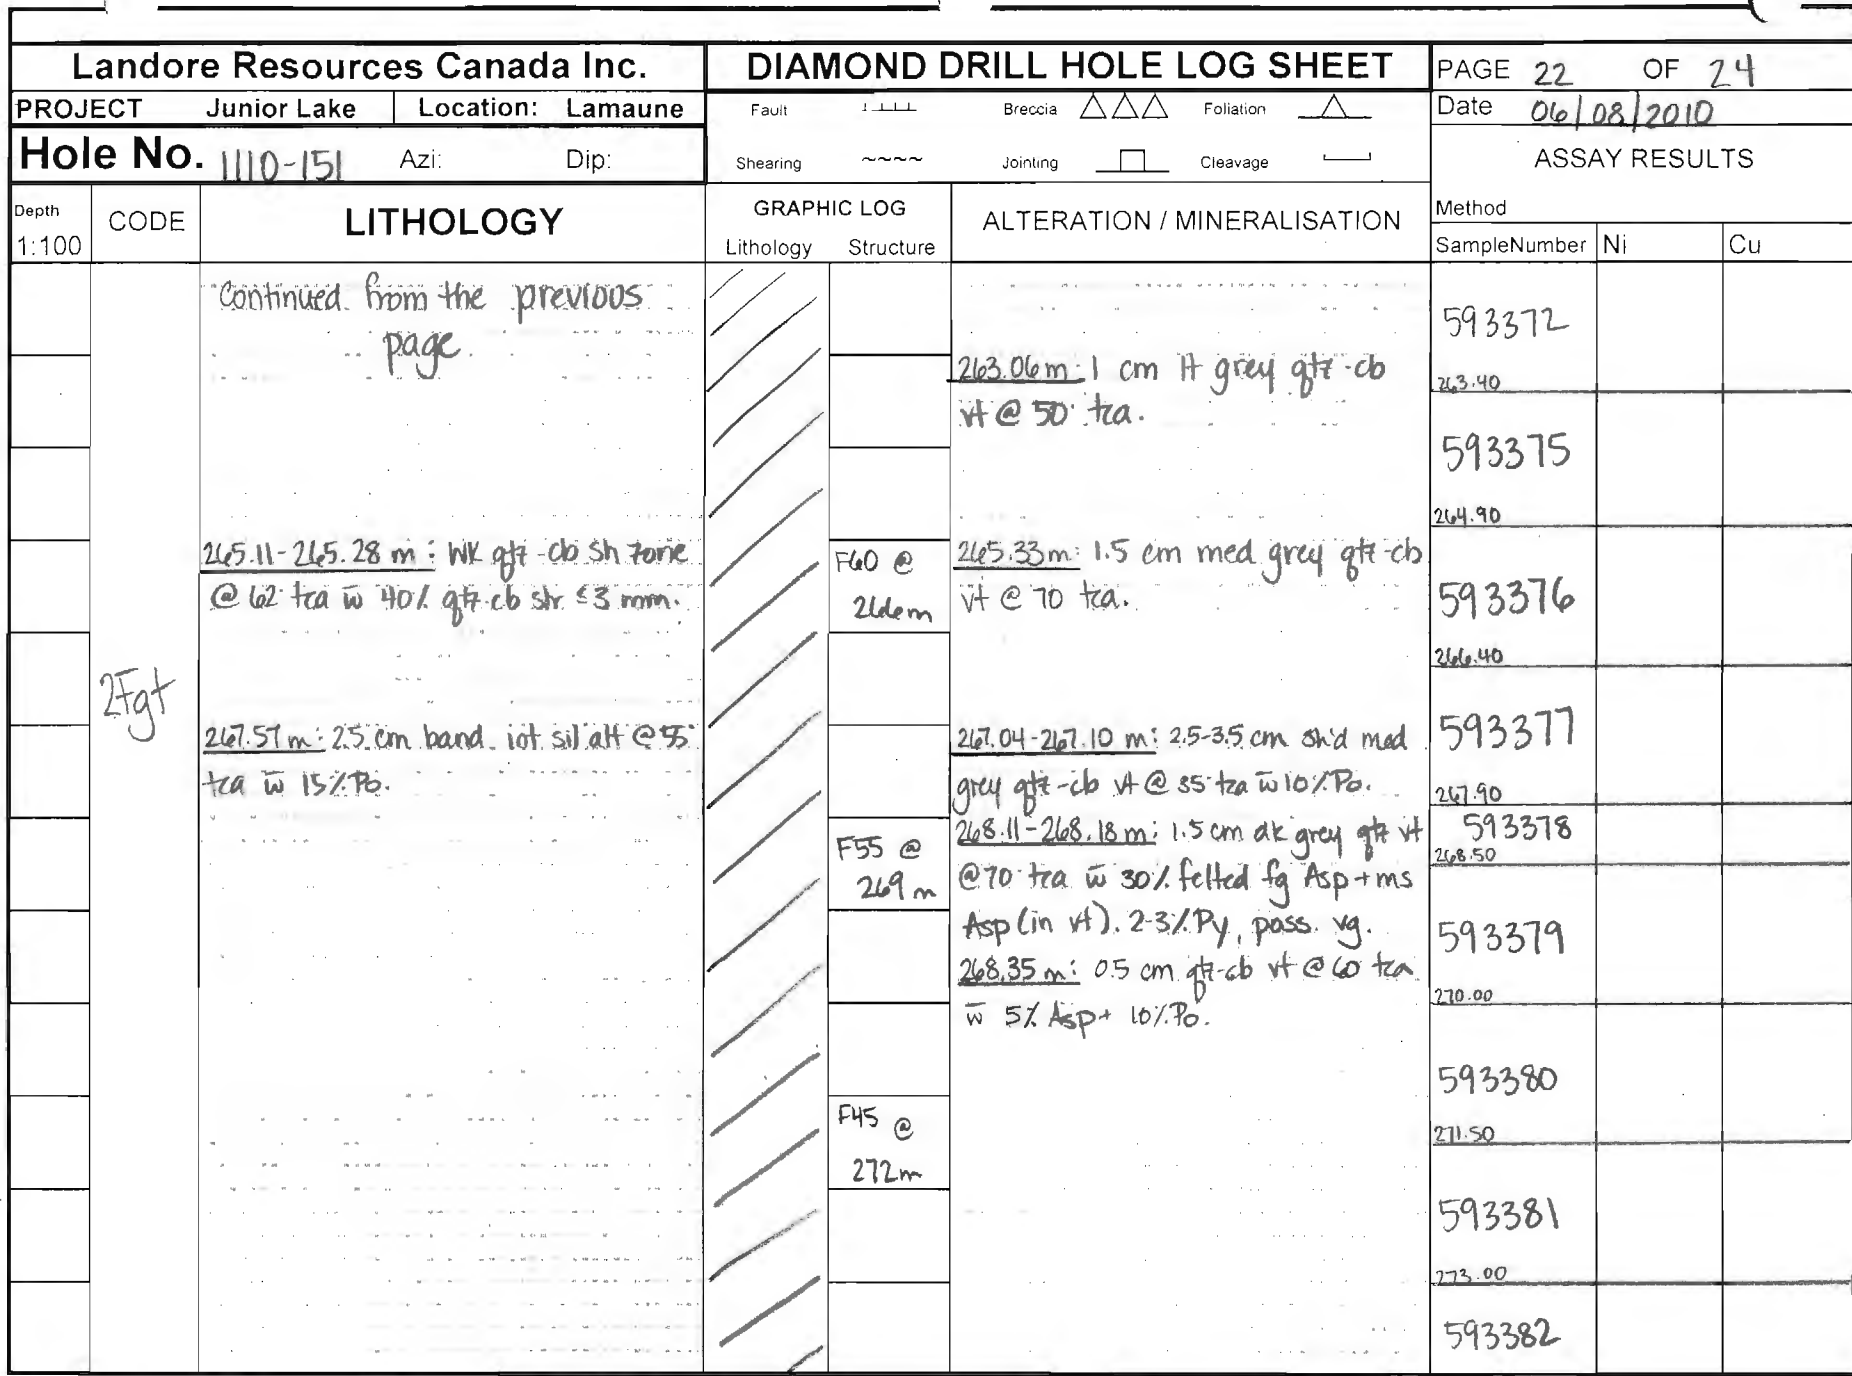 Landore Resources Canada Inc.
DIAMOND DRILL HOLE LOG SHEET
PAGE 22 OF 24
PROJECT Junior Lake Location: Lamaune
Fault Breccia Foliation
Date 06/08/2010
Hole No. 1110-151 Azi: Dip:
Shearing Jointing Cleavage
ASSAY RESULTS
Depth
1:100
CODE
LITHOLOGY
GRAPHIC LOG
Lithology Structure
ALTERATION / MINERALISATION
Method
SampleNumber Ni Cu
2Fgt
Continued from the previous
page.
265.11-265.28 m: WK qtz-cb sh zone
@ 62° tca w̄ 40% qtz-cb str ≤3 mm.
267.57 m: 2.5 cm band int sil alt @ 55°
tca w̄ 15% Po.
F60 @
266m
F55 @
269 m
F45 @
272m
263.06 m: 1 cm lt grey qtz-cb
vt @ 50° tca.
265.33m: 1.5 cm med grey qtz-cb
vt @ 70 tca.
267.04-267.10 m: 2.5-3.5 cm sh'd med
grey qtz-cb vt @ 35° tca w̄ 10% Po.
268.11-268.18 m: 1.5 cm dk grey qtz vt
@ 70° tca w̄ 30% felted fg Asp + ms
Asp (in vt). 2-3% Py, poss. vg.
268.35 m: 0.5 cm qtz-cb vt @ 60 tca
w̄ 5% Asp + 10% Po.
593372
263.40
593375
264.90
593376
266.40
593377
267.90
593378
268.50
593379
270.00
593380
271.50
593381
273.00
593382